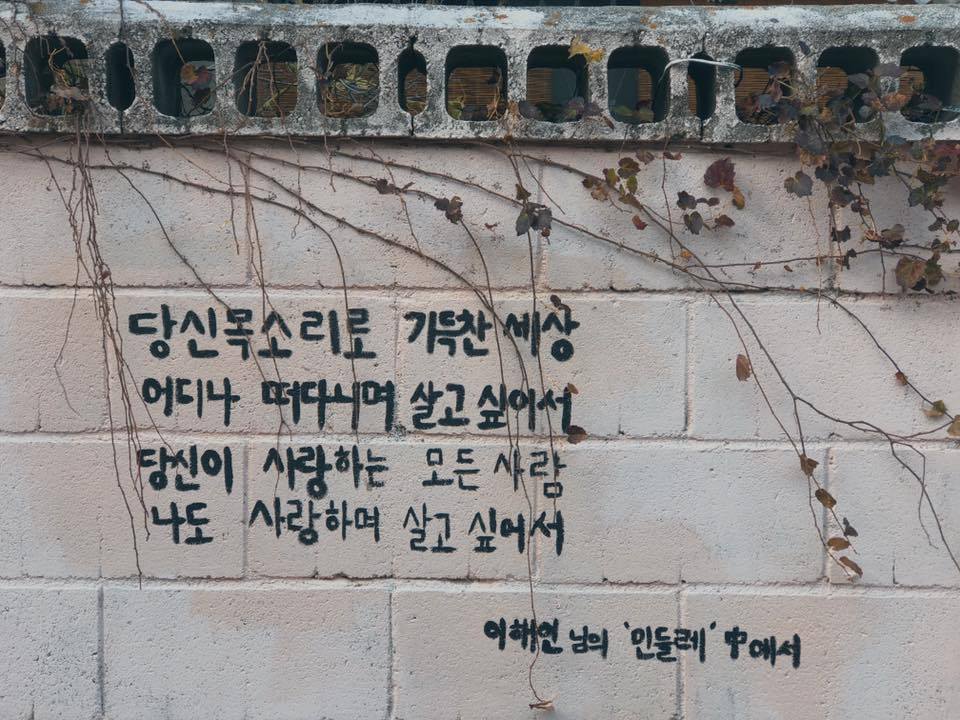 당신 목소리로 가득찬 세상
어디나 떠다니며 살고 싶어서
당신이 사랑하는 모든 사람
나도 사랑하며 살고 싶어서
이해인 님의 '민들레' 中에서